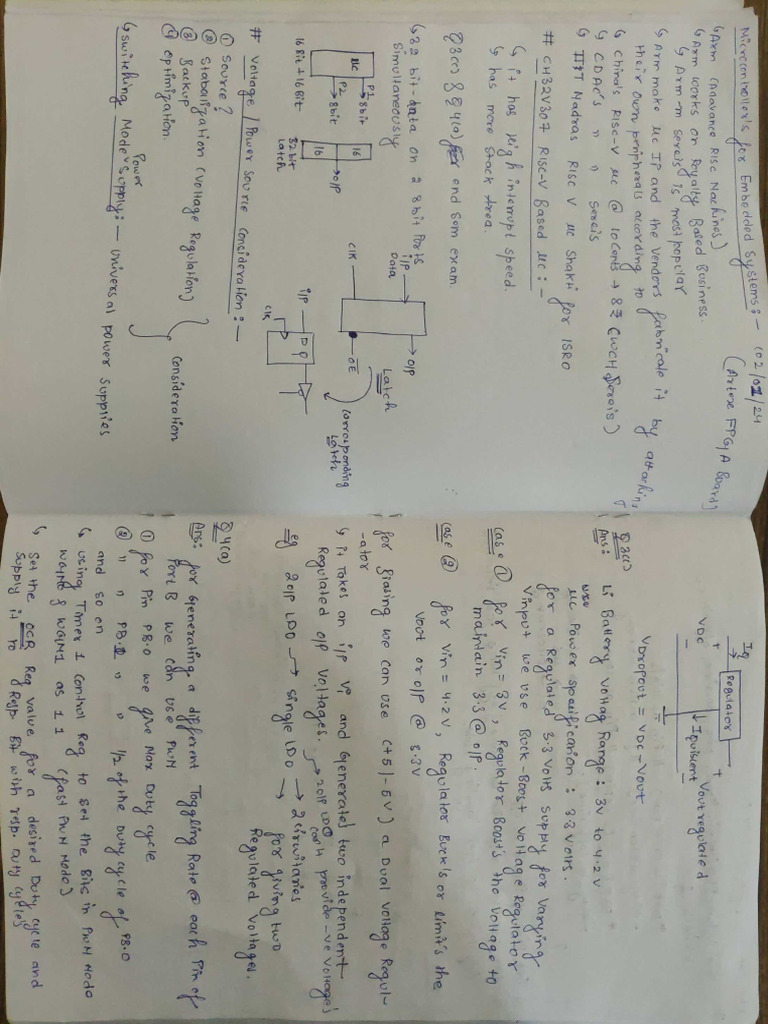 Microcontroller's for Embedded Systems:- (02/01/24
(Artex FPGA Board)
↳ Arm (Advance Risc Machines)
↳ Arm works on Royalty Based Business.
↳ Arm-m sereis is most popular
↳ Arm make μc IP and the vendors fabricate it by attaching
their own peripherals according to
↳ China's RISC-V μc @ 10 cents → 8₹ (WCH Sereis)
↳ CDAC's " " sereis
↳ IIT Madras RISC V μc Shakti for ISRO
# CH32V307 RISC-V Based μc:-
↳ it has high interrupt speed.
↳ has more stack area.
Q3(c) & Q4(a) end sem exam.
↳ 32 bit-data on 2 8bit ports
simultaneously
μc
P1
→ 8bit
P2
→ 8bit
16Bit + 16Bit
16
16
→ O/P
32bit
Latch
i/P
Data
→ O/P
CLK
OE
Latch
corresponding
Latch
i/P
D Q
CLK
# Voltage/Power Source Consideration:-
① Source?
② Stabalization (Voltage Regulation)
③ Backup
④ optimization.
Consideration
↳ Switching Mode Power Supply:- universal power supplies
Iq
Regulator
+
+
VDC
Vout regulated.
Iquiscent
VDROPOUT = VDC - Vout
Q3(c)
Ans: Li Battery Voltag Range: 3V to 4.2V
μc Power Specification: 3.3 Volts.
for a Regulated 3.3 Volts supply for varying
Vinput we use Buck-Boost Voltage Regulator
Case ① for Vin = 3V, Regulator Boosts the Voltage to
maintain 3.3 @ O/P.
Case ② for Vin = 4.2V, Regulator Bucks or limits the
Vout or O/P @ 3.3V
for Biasing we can use (+5|-5V) a Dual Voltage Regul-
-ator
↳ it takes on i/P V, and Generates two independent
Regulated O/P Voltages. → 2O/P LDO
can't provide -ve Voltages
eg 2O/P LDO → single LDO → 2 circuitaries
for giving two
Regulated Voltages.
Q4(a)
Ans: for Generating a different Toggling Rate @ each Pin of
Port B we can use PWM
① for Pin PB.0 we give Max Duty cycle
② " " PB.1 " " 1/2 of the Duty cycle of PB.0
and so on
↳ using Timer 1 Control Reg to set the Bits in PWM Mode
WGM0 & WGM1 as 11 (fast PWM Mode)
↳ Set the OCR Reg value for a desired Duty cycle and
supply it to Resp Bit with resp. Duty cycles